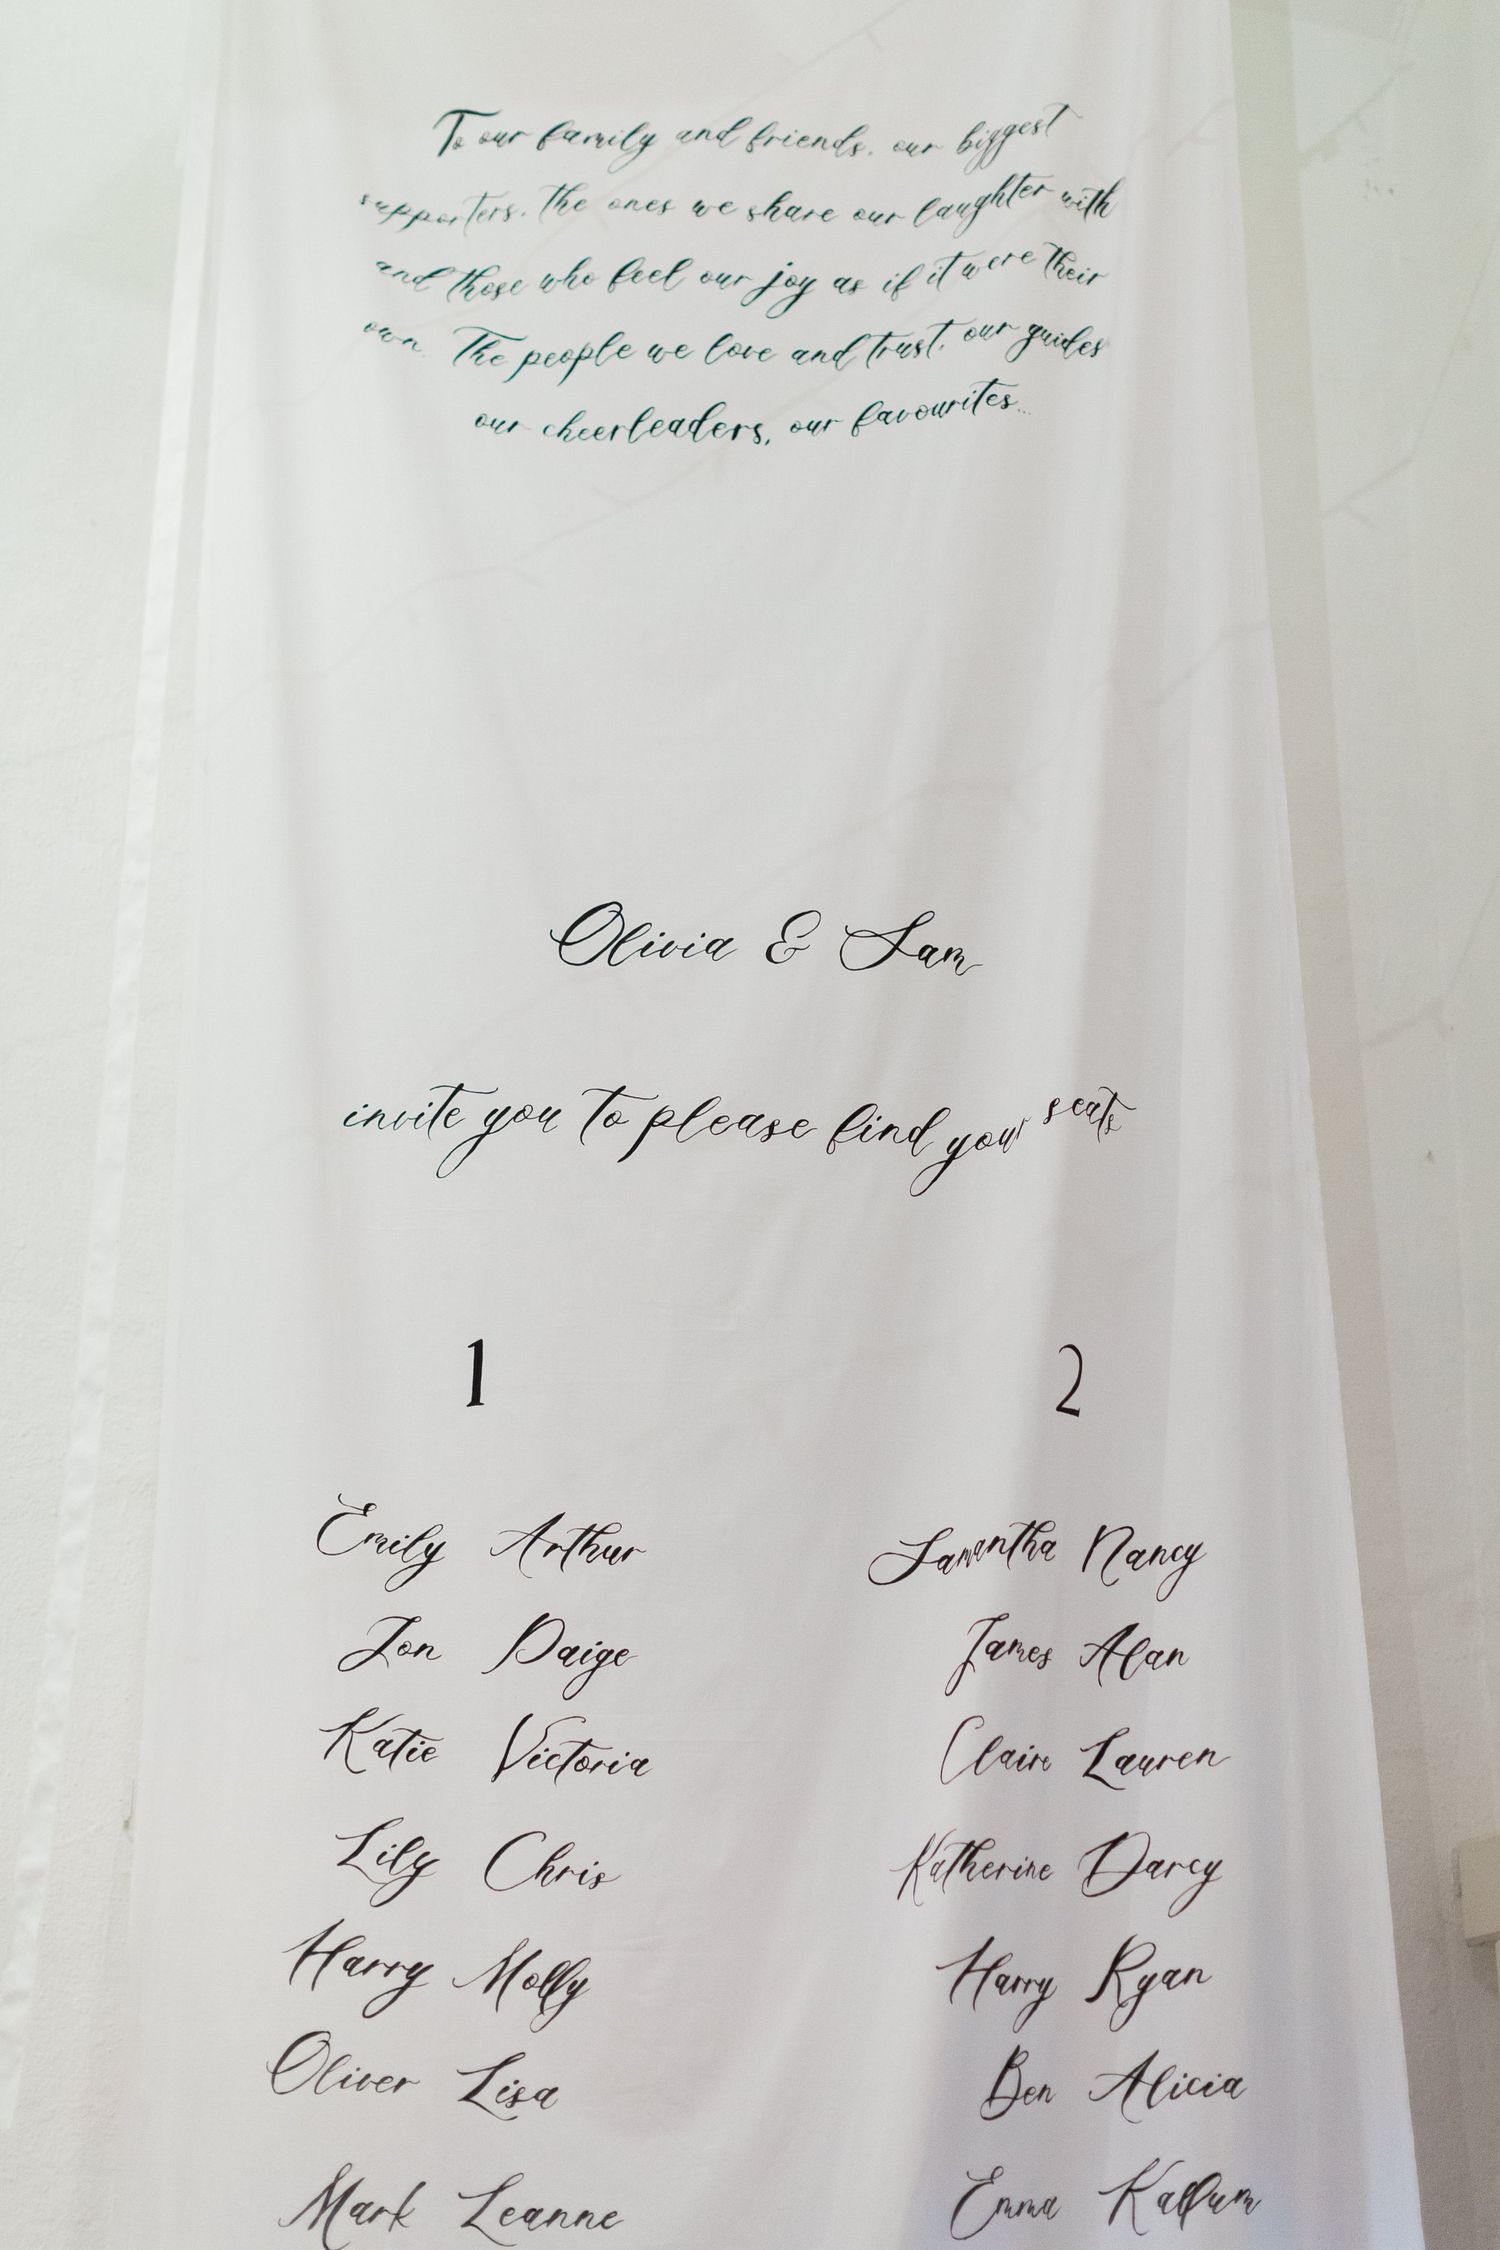 To our family and friends, our biggest
supporters, the ones we share our laughter with
and those who feel our joy as if it were their
own. The people we love and trust, our guides
our cheerleaders, our favourites...
Olivia & Sam
invite you to please find your seats
1 2
Emily Arthur Samantha Nancy
Jon Paige James Alan
Katie Victoria Claire Lauren
Lily Chris Katherine Darcy
Harry Molly Harry Ryan
Oliver Lisa Ben Alicia
Mark Leanne Emma Kallum